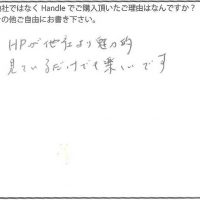 社ではなく Handle でご購入頂いたご理由はなんですか？
の他ご自由にお書き下さい。
HPが他社より魅力的
見ているだけでも楽しいです